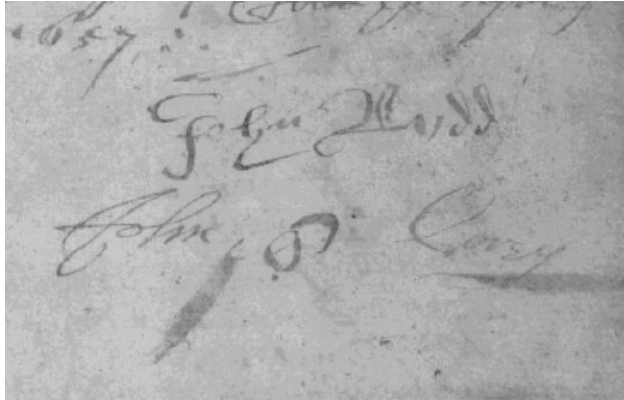 1657
John Rudd
John Corey